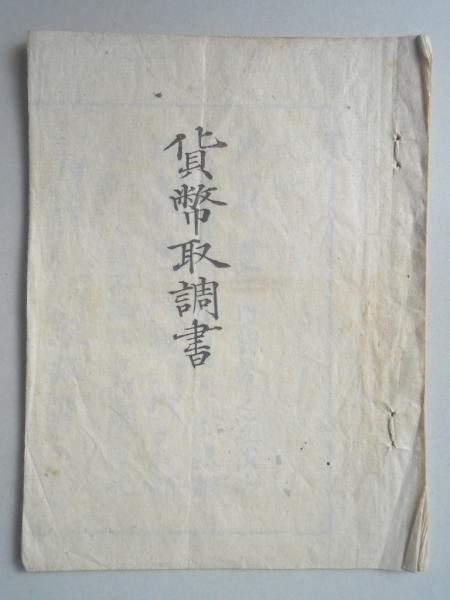 貨幣取調書